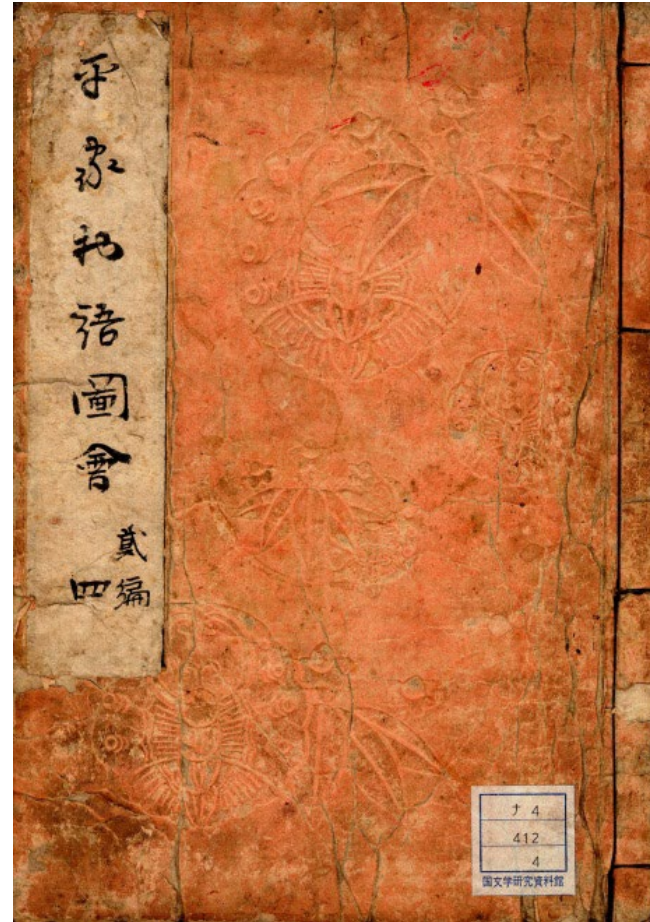 平家物語圖會
貳編
四
ナ4
412
4
国文学研究資料館